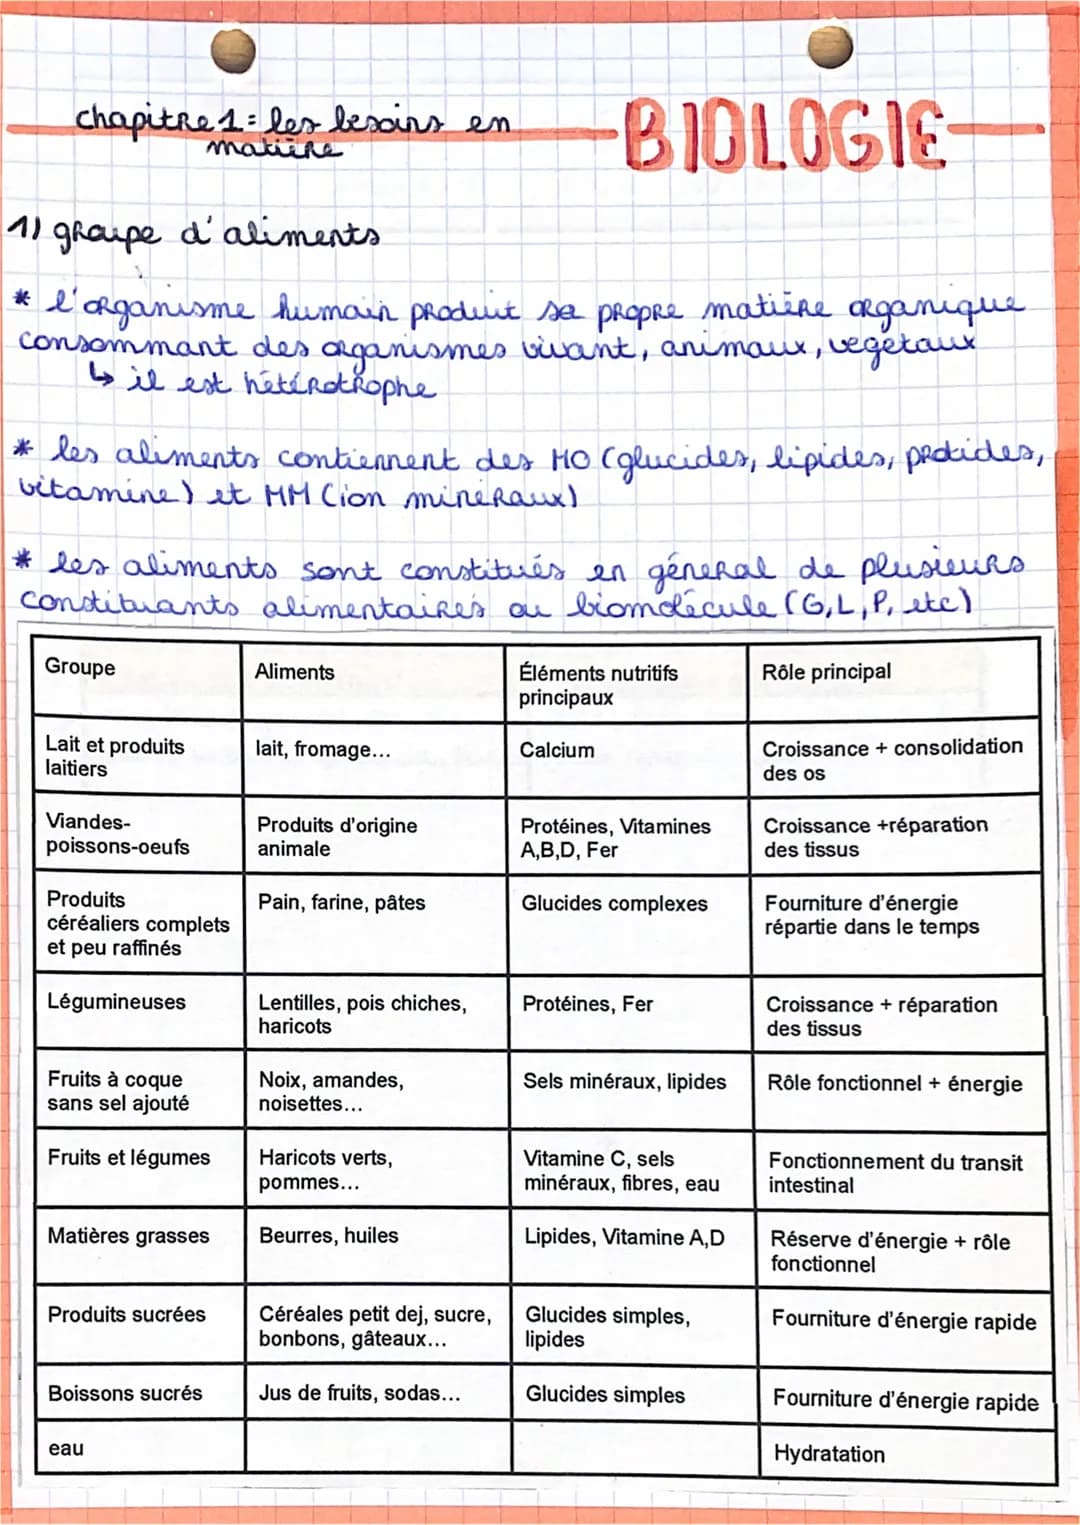 chapitre 1 : les besoins en
matière
BIOLOGIE
1) groupe d'aliments
* l'organisme humain produit sa propre matière organique
consommant des organismes vivant, animaux, vegetaux
↳ il est hétérotrophe
* les aliments contiennent des MO (glucides, lipides, protides,
vitamine) et MM (ion mineraux)
* les aliments sont constitués en géneral de plusieurs
constituants alimentaires ou biomolécule (G, L, P, etc)
Groupe Aliments Éléments nutritifs Rôle principal
principaux
Lait et produits lait, fromage... Calcium Croissance + consolidation
laitiers des os
Viandes- Produits d'origine Protéines, Vitamines Croissance +réparation
poissons-oeufs animale A,B,D, Fer des tissus
Produits Pain, farine, pâtes Glucides complexes Fourniture d'énergie
céréaliers complets répartie dans le temps
et peu raffinés
Légumineuses Lentilles, pois chiches, Protéines, Fer Croissance + réparation
haricots des tissus
Fruits à coque Noix, amandes, Sels minéraux, lipides Rôle fonctionnel + énergie
sans sel ajouté noisettes...
Fruits et légumes Haricots verts, Vitamine C, sels Fonctionnement du transit
pommes... minéraux, fibres, eau intestinal
Matières grasses Beurres, huiles Lipides, Vitamine A,D Réserve d'énergie + rôle
fonctionnel
Produits sucrées Céréales petit dej, sucre, Glucides simples, Fourniture d'énergie rapide
bonbons, gâteaux... lipides
Boissons sucrés Jus de fruits, sodas... Glucides simples Fourniture d'énergie rapide
eau Hydratation